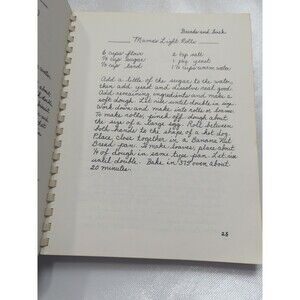 Breads and such
Mama's Light Rolls
6 cups flour 2 tsp salt
1 pkg yeast
cup lard 1 ½ cups warm water
Add a little of the sugar to the water,
then add yeast and dissolve real good.
Add remaining ingredients and make a
soft dough. Let rise until double in size
Work down and make into rolls or loaves.
To make rolls, pinch off dough about
the size of a large egg. Roll between
both hands to the shape of a hot dog.
Place close together in a Banana Nut
Bread pan. To make loaves, place about
of dough in same type pan. Let rise
until double. Bake in 375 oven about
20 minutes.
25